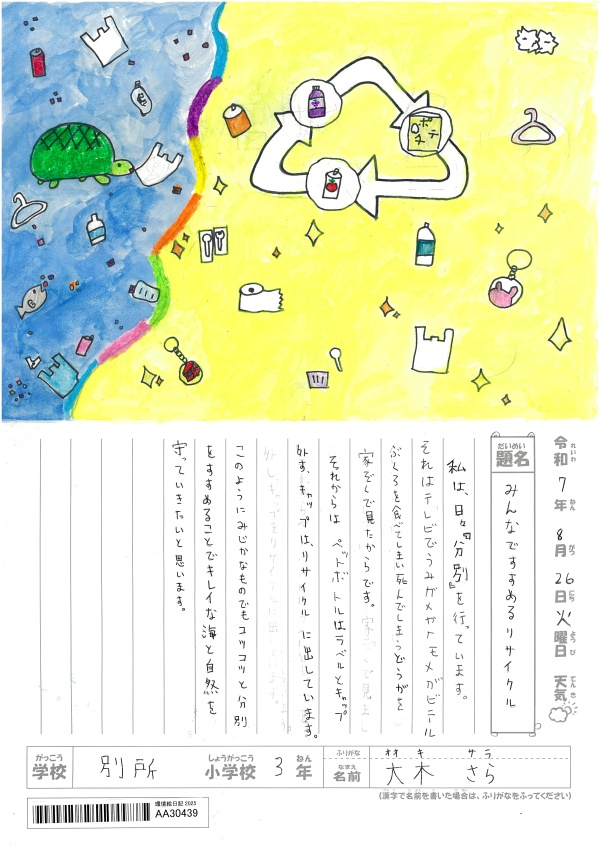 ポ
ス
テ
令和7年8月26日火曜日 天気
れいわ ねん がつ にち ようび てんき
だいめい
題名
みんなですすめるリサイクル
私は、日々『分別』を行っています。
それはテレビでうみガメやカモメがビニール
ぶくろを食べてしまい死んでしまうどうがを
家ぞくで見たからです。
それからは ペットボトルはラベルとキャップ
外す、キャップは、リサイクルに出しています。
このようにみじかなものでもコツコツと分別
をすすめることでキレイな海と自然を
守っていきたいと思います。
がっこう しょうがっこう ねん
学校 別所 小学校 3年
ふりがな オオ キ サラ
なまえ
名前 大木 さら
(漢字で名前を書いた場合は、ふりがなをふってください)
環境絵日記 2025
AA30439